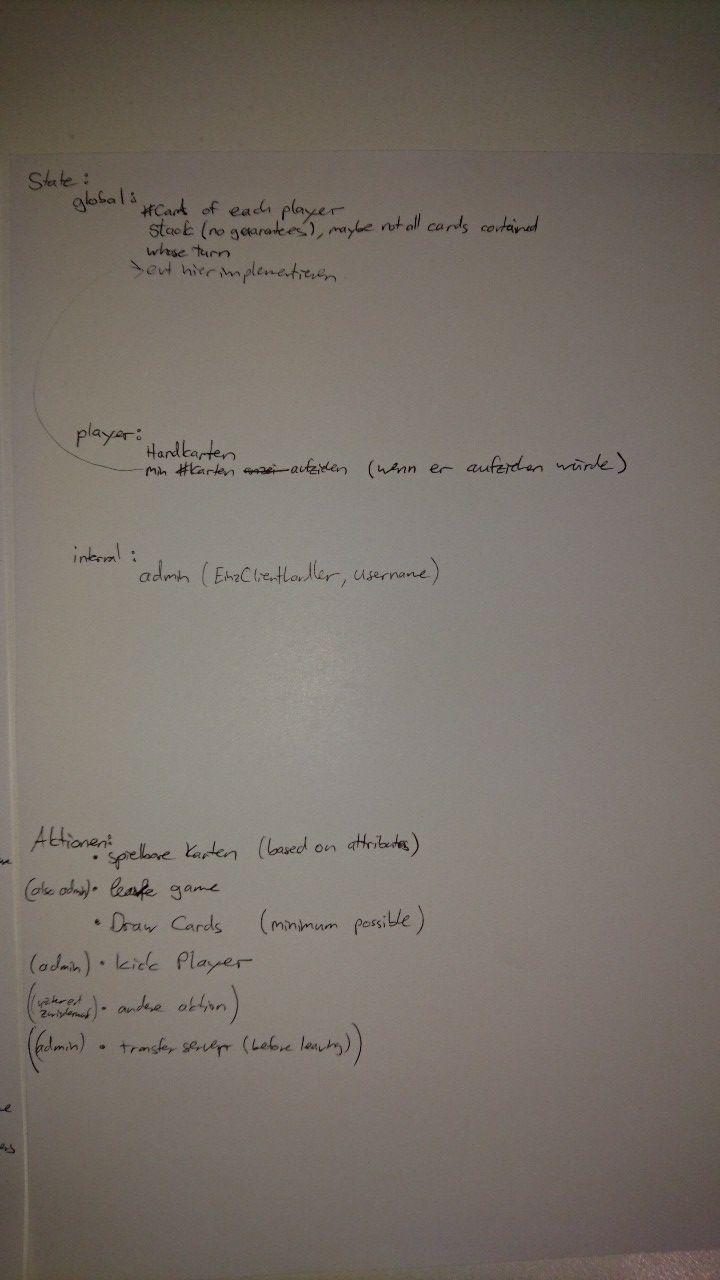 State:
global:
#Cards of each player
Stack (no guarantees), maybe not all cards contained
whose turn
→ evt hier implementieren
player:
Handkarten
min #Karten aufziehen (wenn er aufziehen würde)
internal:
admin (EinzClientHandler, username)
Aktionen:
• spielbare Karten (based on attributes)
(also admin) • leave game
• Draw Cards (minimum possible)
(admin) • kick Player
• andere aktion)
((admin) • transfer server (before leaving))